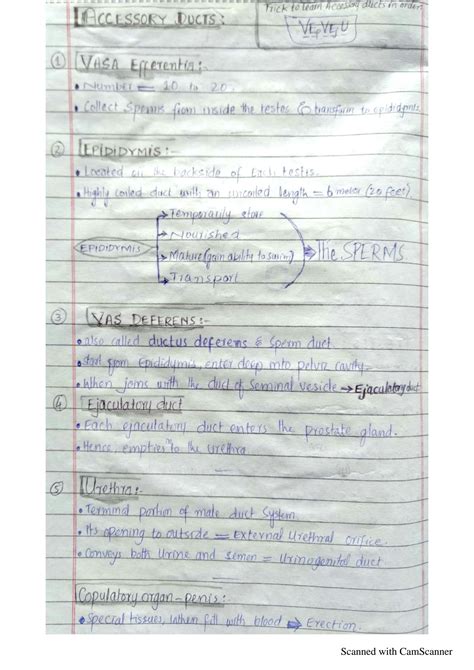 ACCESSORY DUCTS:
Trick to learn Accessory ducts in order
VEpVEjU
① VASA Efferentia:-
• Number = 10 to 20.
• Collect Sperms from inside the testes & transform to epididymis
② EPIDIDYMIS:-
• Located on the backside of Each testis.
• Highly coiled duct with an uncoiled length = 6 meter (20 feet).
EPIDIDYMIS
→ Temporarily store
→ Nourished
→ Mature (gain ability to swim)
→ Transport
⇒ The SPERMS
③ VAS DEFERENS:-
• also called ductus deferens & Sperm duct
• start from Epididymis, enter deep into pelvic cavity.
• When joins with the duct of Seminal vesicle → Ejaculatory duct
④ Ejaculatory duct
• Each ejaculatory duct enters the prostate gland.
• Hence, empties into the urethra.
⑤ Urethra:-
• Terminal portion of male duct System.
• Its opening to outside = External Urethral orifice.
• Conveys both Urine and semen = Urinogenital duct
Copulatory organ - penis:-
• Special tissues, when fill with blood → Erection.
Scanned with CamScanner